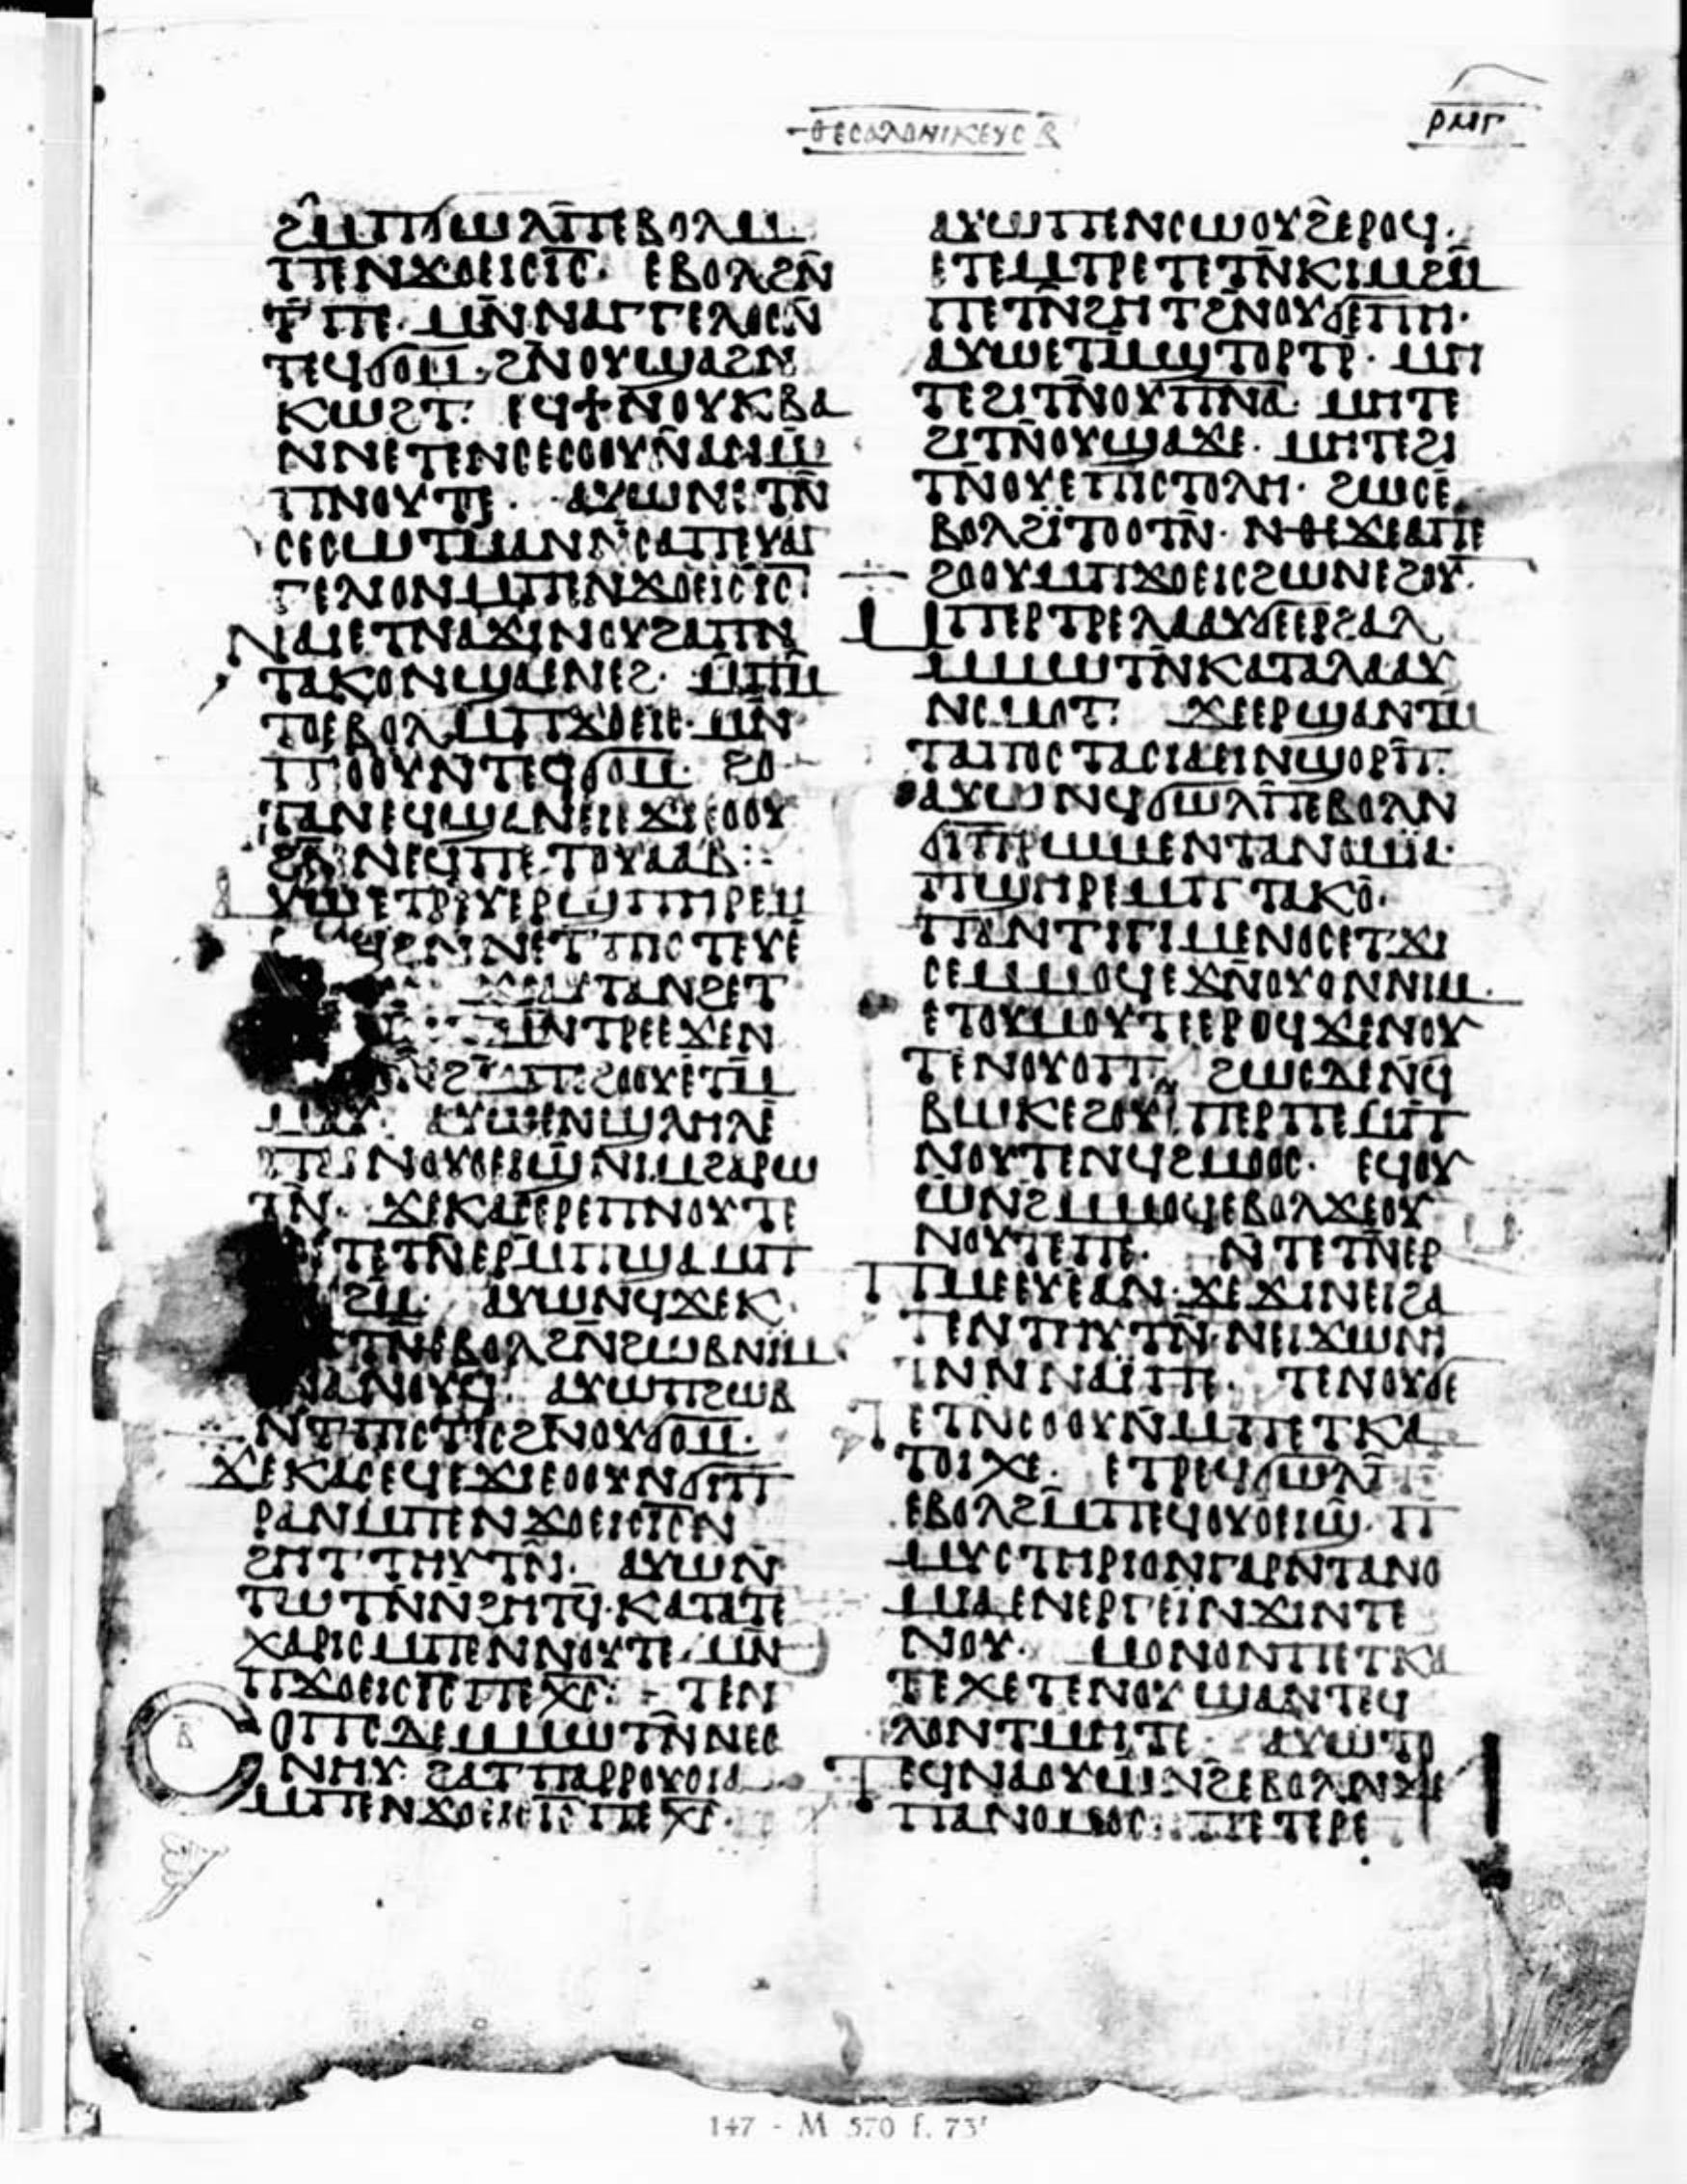 ⲑⲉⲥⲁⲗⲟⲛⲓⲕⲉⲩⲥ ⲃ̅
ⲣⲙⲅ
ϩⲙ̅ⲡϭⲱⲗⲡ̅ⲉⲃⲟⲗⲙ
ⲡⲉⲛϫⲟⲉⲓⲥⲓ̅ⲥ̅· ⲉⲃⲟⲗϩⲛ̅
ⲧ̅ⲡⲉ· ⲙⲛ̅ⲛⲁⲅⲅⲉⲗⲟⲥⲛ̅
ⲧⲉϥϭⲟⲙ· ϩⲛ̅ⲟⲩϣⲁϩⲛ
ⲕⲱϩⲧ· ⲉϥϯⲛⲟⲩⲕⲃⲁ
ⲛⲛⲉⲧⲉⲛⲥⲉⲥⲟⲟⲩⲛ̅ⲁⲛⲙ̅
ⲡⲛⲟⲩⲧⲉ· ⲁⲩⲱⲛⲉⲧⲛ̅
ⲥⲉⲥⲱⲧⲙⲁⲛⲛ̅ⲥⲁⲡⲉⲩⲁⲅ
ⲅⲉⲗⲓⲟⲛⲙ̅ⲡⲉⲛϫⲟⲉⲓⲥⲓ̅ⲥ̅
ⲛⲁⲓⲉⲧⲛⲁϫⲓⲛⲟⲩϩⲁⲡⲛ
ⲧⲁⲕⲟⲛϣⲁⲉⲛⲉϩ· ⲙ̅ⲡⲙ̅
ⲧⲟⲉⲃⲟⲗⲙ̅ⲡϫⲟⲉⲓⲥ· ⲙⲛ̅
ⲡⲉⲟⲟⲩⲛⲧⲉϥϭⲟⲙ· ϩⲟ
ⲧⲁⲛⲉϥϣⲁⲛⲉⲓⲉϫⲓⲉⲟⲟⲩ
ϩⲛ̅ⲛⲉϥⲡⲉⲧⲟⲩⲁⲁⲃ:
ⲁⲩⲱⲉⲧⲣⲉⲩⲉⲣϣⲡⲏⲣⲉⲙ
ϥϩⲛⲛⲉⲧⲡⲓⲥⲧⲉⲩⲉ
ϫⲉⲁⲩⲧⲁⲛϩⲉⲧ
ⲙⲛⲧⲣⲉⲉϫⲉⲛ
ⲛϩⲙⲡⲉϩⲟⲟⲩⲉⲧⲙ̅
ⲙⲁⲩ· ⲁⲩⲱⲉⲛϣⲗⲏⲗⲉ
ⲡⲉⲓⲛⲟⲩⲟⲉⲓϣⲛⲓⲙϩⲁⲣⲱ
ⲧⲛ̅· ϫⲉⲕⲁⲥⲉⲣⲉⲡⲛⲟⲩⲧⲉ
ⲧⲉⲧⲛ̅ⲉⲣⲙ̅ⲡϣⲁⲙⲡ
ϩⲙ· ⲁⲩⲱⲛϥϫⲉⲕ
ⲧⲛ̅ⲉⲃⲟⲗϩⲛ̅ϩⲱⲃⲛⲓⲙ
ⲛⲁⲛⲟⲩϥ· ⲁⲩⲱⲡϩⲱⲃ
ⲛⲧⲡⲓⲥⲧⲓⲥϩⲛⲟⲩϭⲟⲙ·
ϫⲉⲕⲁⲥⲉϥⲉϫⲓⲉⲟⲟⲩⲛϭⲓⲡ
ⲣⲁⲛⲙ̅ⲡⲉⲛϫⲟⲉⲓⲥⲓ̅ⲥ̅ⲛ
ϩⲏⲧⲧⲏⲩⲧⲛ̅· ⲁⲩⲱⲛ̅
ⲧⲱⲧⲛ̅ⲛ̅ϩⲏⲧϥ̅· ⲕⲁⲧⲁⲧⲉ
ⲭⲁⲣⲓⲥⲙ̅ⲡⲉⲛⲛⲟⲩⲧⲉ· ⲙⲛ̅
ⲡϫⲟⲉⲓⲥⲓ̅ⲥ̅ⲡⲉⲭ̅ⲥ̅: ⲧⲉⲛ
ⲥⲟⲡⲥⲇⲉⲙⲙⲱⲧⲛ̅ⲛⲉⲥ
ⲃ̅
ⲛⲏⲩ· ϩⲁⲧⲡⲁⲣⲣⲟⲩⲥⲓⲁ
ⲙ̅ⲡⲉⲛϫⲟⲉⲓⲥⲓ̅ⲥ̅ⲡⲉⲭ̅ⲥ̅·
ⲁⲩⲱⲡⲉⲛⲥⲱⲟⲩϩⲉⲣⲟϥ·
ⲉⲧⲉⲙⲧⲣⲉⲧⲉⲧⲛ̅ⲕⲓⲙϩⲙ̅
ⲡⲉⲧⲛ̅ϩⲏⲧϩⲛ̅ⲟⲩϭⲉⲡⲏ·
ⲁⲩⲱⲉⲧⲙ̅ϣⲧⲟⲣⲧⲣ̅· ⲙⲏ
ⲧⲉϩⲓⲧⲛ̅ⲟⲩⲡ̅ⲛ̅ⲁ̅· ⲙⲏⲧⲉ
ϩⲓⲧⲛ̅ⲟⲩϣⲁϫⲉ· ⲙⲏⲧⲉϩⲓ
ⲧⲛ̅ⲟⲩⲉⲡⲓⲥⲧⲟⲗⲏ· ϩⲱⲥⲉ
ⲃⲟⲗϩⲓ̈ⲧⲟⲟⲧⲛ̅· ⲛⲑⲉϫⲉⲁⲡⲉ
ϩⲟⲟⲩⲙ̅ⲡϫⲟⲉⲓⲥϩⲱⲛⲉϩⲟⲩ·
ⲙⲡⲉⲣⲧⲣⲉⲗⲁⲁⲩϭⲉⲉⲣϩⲁⲗ
ⲙⲙⲱⲧⲛ̅ⲕⲁⲧⲁⲗⲁⲁⲩ
ⲛⲥⲙⲟⲧ· ϫⲉⲉⲣϣⲁⲛⲧⲙ
ⲧⲁⲡⲟⲥⲧⲁⲥⲓⲁⲉⲓⲛϣⲟⲣⲡ̅·
ⲁⲩⲱⲛϥϭⲱⲗⲡ̅ⲉⲃⲟⲗⲛ
ϭⲓⲡⲣⲱⲙⲉⲛⲧⲁⲛⲟⲙⲓⲁ·
ⲡϣⲏⲣⲉⲙⲡⲧⲁⲕⲟ̅·
ⲡⲁⲛⲧⲓⲅⲓⲙⲉⲛⲟⲥⲉⲧϫⲓ
ⲥⲉⲙⲙⲟϥⲉϫⲛ̅ⲟⲩⲟⲛⲛⲓⲙ·
ⲉⲧⲟⲩⲙⲟⲩⲧⲉⲉⲣⲟϥϫⲉⲛⲟⲩ
ⲧⲉⲛⲟⲩⲟⲡ· ϩⲱⲥⲇⲉⲛϥ
ⲃⲱⲕⲉϩⲟⲩⲡⲉⲣⲡⲉⲙ̅ⲡ
ⲛⲟⲩⲧⲉⲛϥϩⲙⲟⲟⲥ· ⲉϥⲟⲩ
ⲱⲛϩⲙⲙⲟϥⲉⲃⲟⲗϫⲉⲟⲩ
ⲛⲟⲩⲧⲉⲡⲉ· ⲛ̅ⲧⲉⲧⲛ̅ⲉⲣ
ⲡⲙⲉⲉⲩⲉⲁⲛ· ϫⲉϫⲓⲛⲉⲓϩⲁ
ⲧⲉⲛⲧⲏⲩⲧⲛ̅· ⲛⲉⲓϫⲱⲛⲏ
ⲧⲛⲛⲛⲁⲓ̈ⲡⲉ· ⲧⲉⲛⲟⲩϭⲉ
ⲧⲉⲧⲛ̅ⲥⲟⲟⲩⲛ̅ⲙ̅ⲡⲉⲧⲕⲁ
ⲧⲟⲓⲭⲉ· ⲉⲧⲣⲉϥϭⲱⲗⲡ̅
ⲉⲃⲟⲗϩⲙ̅ⲡⲉϥⲟⲩⲟⲉⲓϣ· ⲡ
ⲙⲩⲥⲧⲏⲣⲓⲟⲛⲅⲁⲣⲛⲧⲁⲛⲟ
ⲙⲓⲁⲉⲛⲉⲣⲅⲉⲓ̈ⲛϫⲓⲛⲧⲉ
ⲛⲟⲩ· ⲙⲟⲛⲟⲛⲡⲉⲧⲕⲁ
ⲧⲉⲭⲉⲧⲉⲛⲟⲩϣⲁⲛⲧⲉϥ
ⲗⲟⲛⲧⲙⲏⲧⲉ· ⲁⲩⲱⲧⲟ
ⲧⲉϥⲛⲁⲟⲩⲱⲛϩⲉⲃⲟⲗⲛϭⲓ
ⲡⲁⲛⲟⲙⲟⲥ: ⲡⲉⲧⲉⲣⲉ
147 - M 570 f. 73ʳ